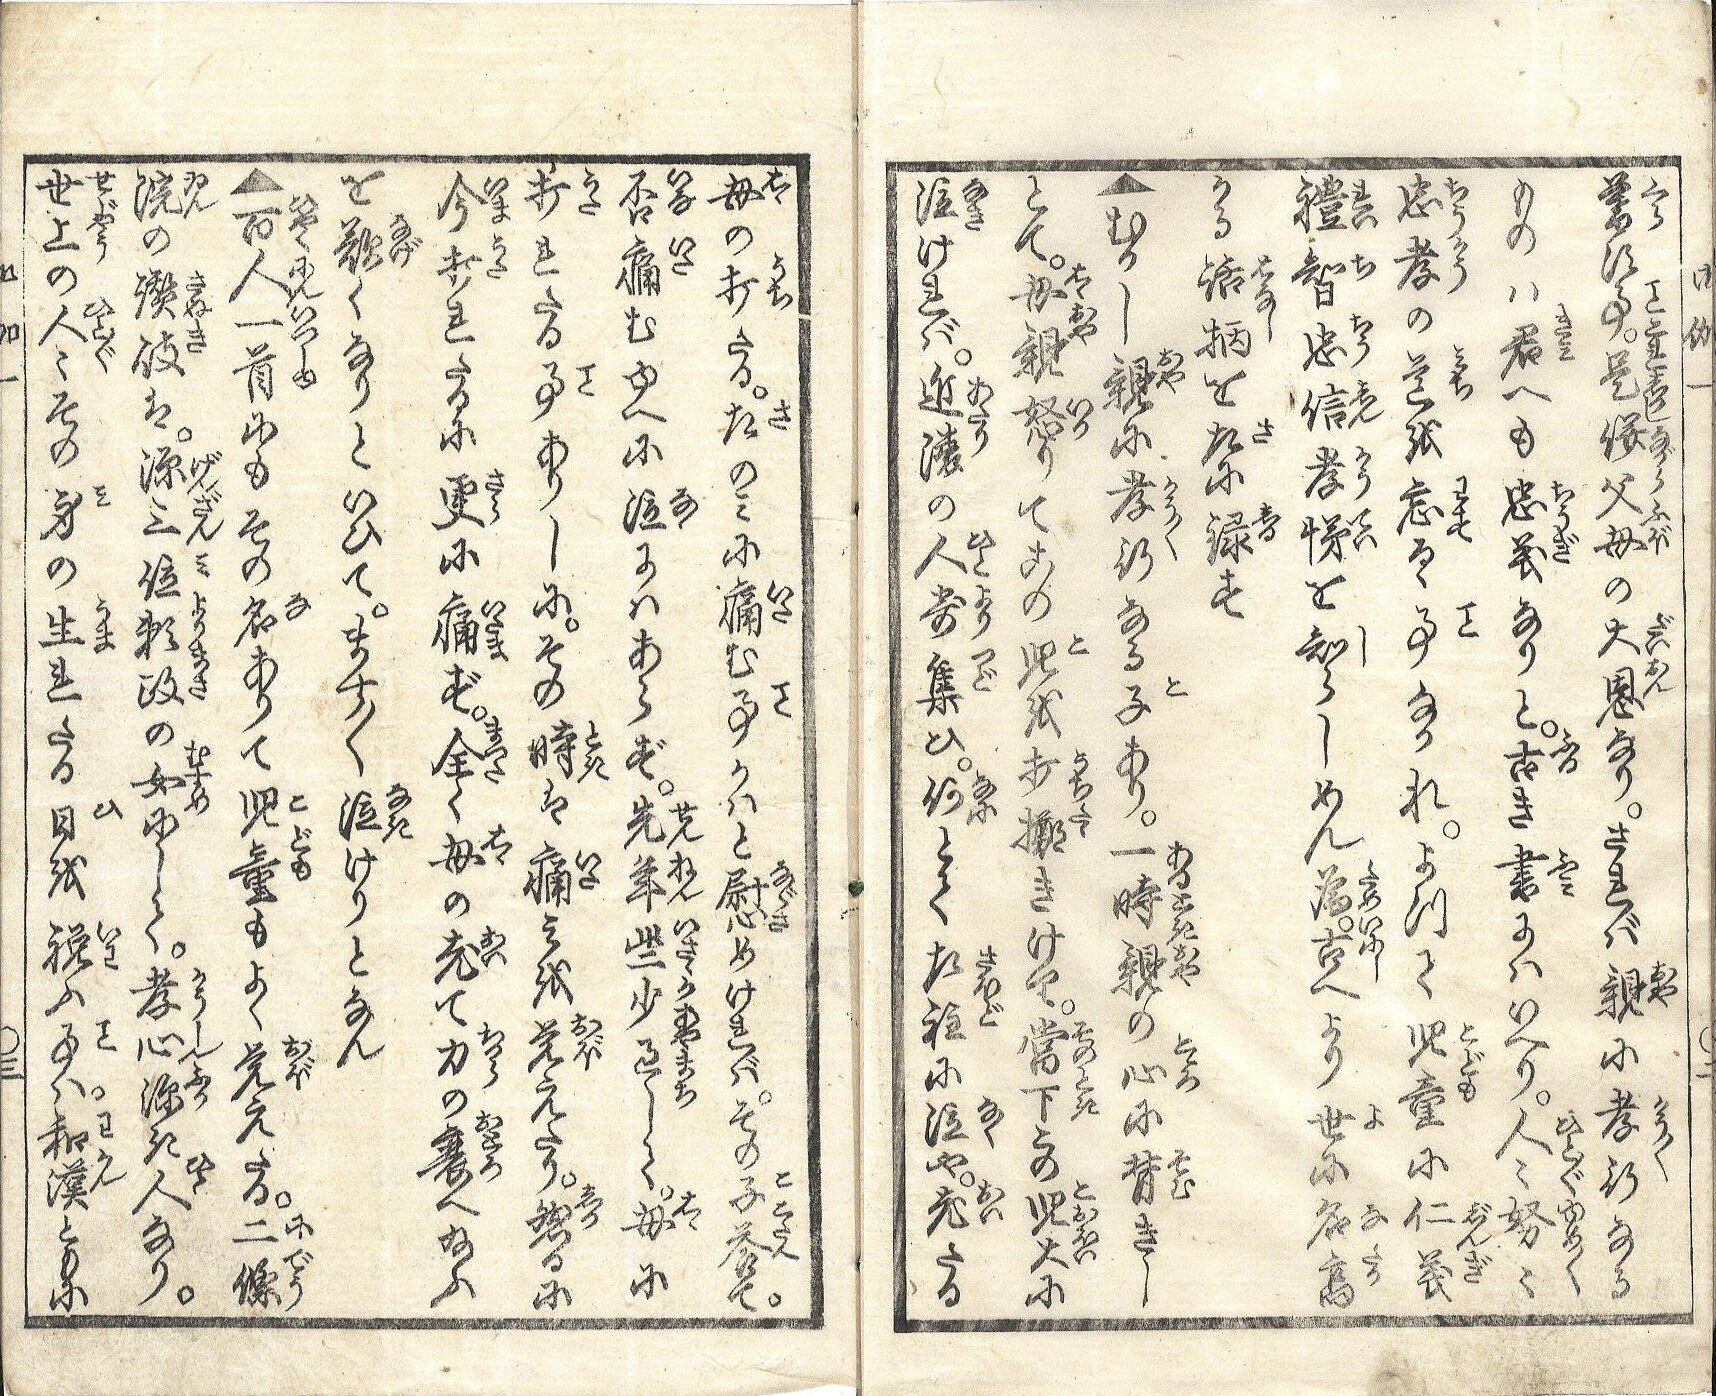 蒙る事。是偏父母の大恩なり。されバ親に孝行なる
ものハ君へも忠義なりと。古き書にハいへり。人々努々
忠孝の道を忘るゝ事なかれ。よつて児童に仁義
禮智忠信孝悌を知らしめん為。古へより世に名高
かる話柄を左に録す
▲むかし親に孝行なる子あり。一時親の心に背きし
とて。母親怒りてその児を打擲きけり。當下その児大に
泣けれバ。近邊の人寄集ひ。何とて左程に泣や。老たる
母の打たる。左のミに痛む事かハと慰めけれバ。その子答て。
否痛むゆへに泣にハあらず。先年些少過して。母に
打れたる事ありしに。その時は痛ミを覚えたり。然るに
今打れたるに更に痛ず。全く母の老て力の衰へ給ふ
を歎くなりといひて。ますます泣けりとなん
▲百人一首にもその名ありて児童もよく覚えたる。二條
院の讃岐は。源三位頼政の女にして。孝心深き人なり。
世上の人々その身の生れたる日を祝ふ事ハ。和漢ともに